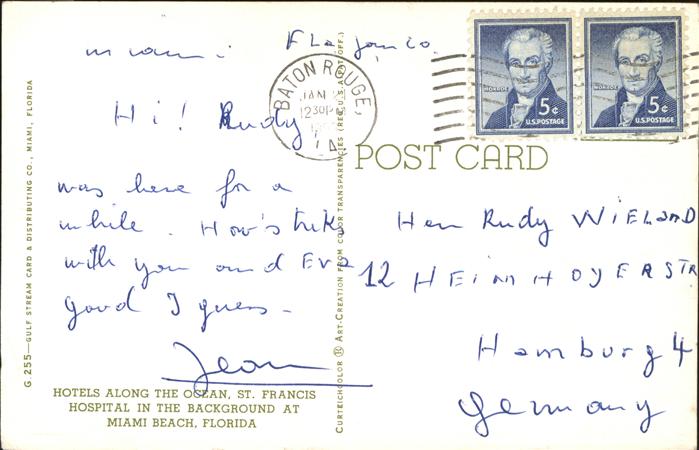 miami. Fla Jan 20.
Hi! Rudy,
was here for a
while. How's tricks
with you and Eva
good I guess-
Jean
HOTELS ALONG THE OCEAN, ST. FRANCIS
HOSPITAL IN THE BACKGROUND AT
MIAMI BEACH, FLORIDA
G.255—GULF STREAM CARD & DISTRIBUTING CO., MIAMI, FLORIDA
CURTEICHCOLOR ® ART-CREATION FROM COLOR TRANSPARENCIES (REG. U.S.A. PAT. OFF.)
BATON ROUGE,
JAN
1230P
LA
MONROE
5¢
U.S. POSTAGE
MONROE
5¢
U.S. POSTAGE
POST CARD
Herr Rudy WIELAND
12 HEIMHOYERSTR
Hamburg 4
Germany